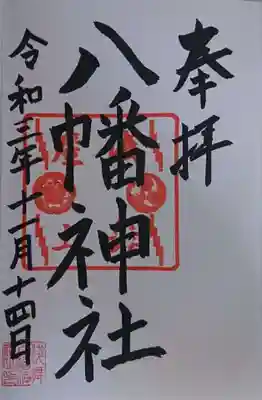 奉拝
八幡神社
令和三年十一月十四日